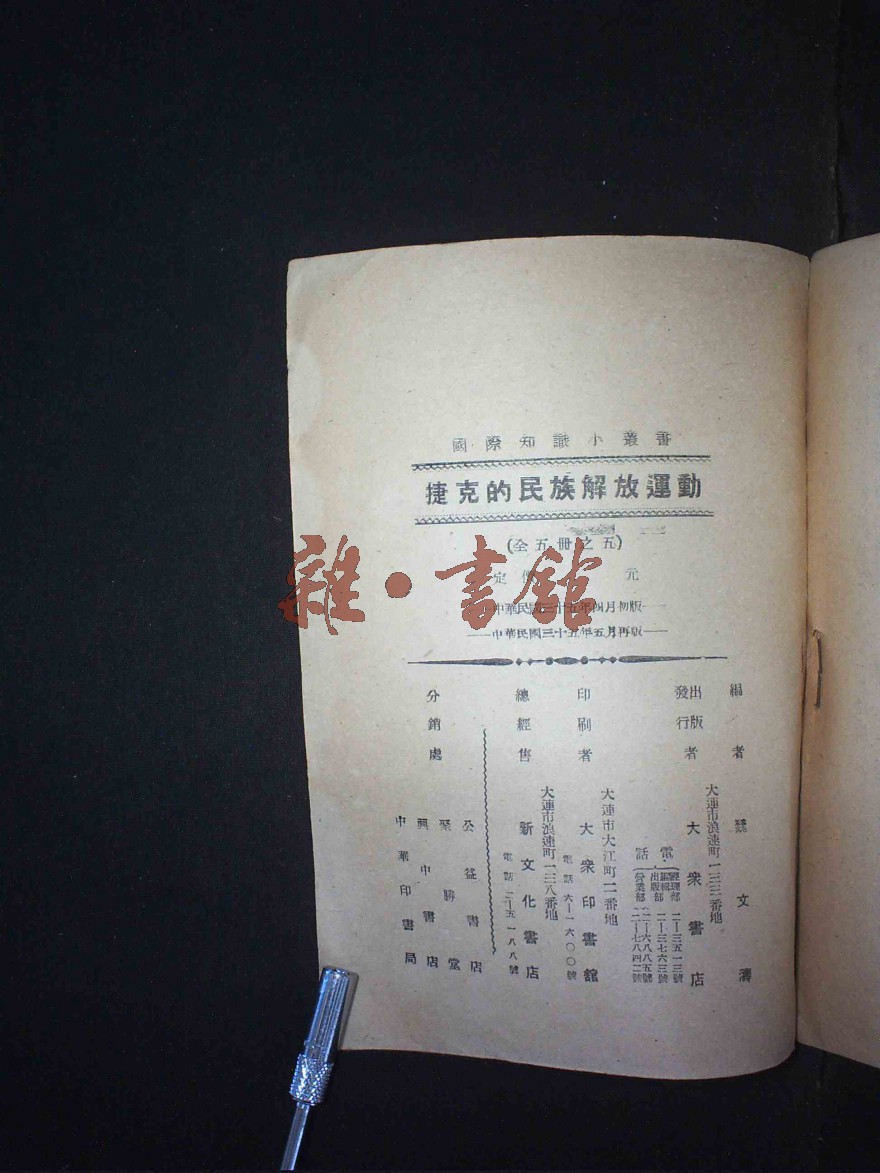 國際知識小叢書
捷克的民族解放運動
(全五冊之五)
定價 元
——中華民國三十五年四月初版——
——中華民國三十五年五月再版——
編者 魏文濤
大連市浪速町一三三番地
出版
發行
者 大衆書店
電話
經理部 二—三五一三號
編輯部 二—三七六三號
出版部 二—六八八五號
營業部 二—七八四二號
大連市大江町二番地
印刷者 大衆印書館
電話 六—一六〇〇號
大連市浪速町一三八番地
總經售 新文化書店
電話 二—五一八八號
分銷處
公益書店
聚勝堂
興中書店
中華印書局
雜·書館